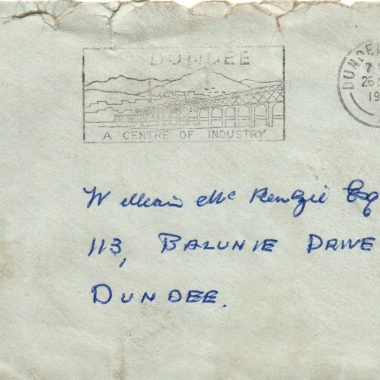 DUNDEE
A CENTRE OF INDUSTRY
DUNDEE
7
26
19
William McKenzie Esq
113, BALUNIE DRIVE
DUNDEE.